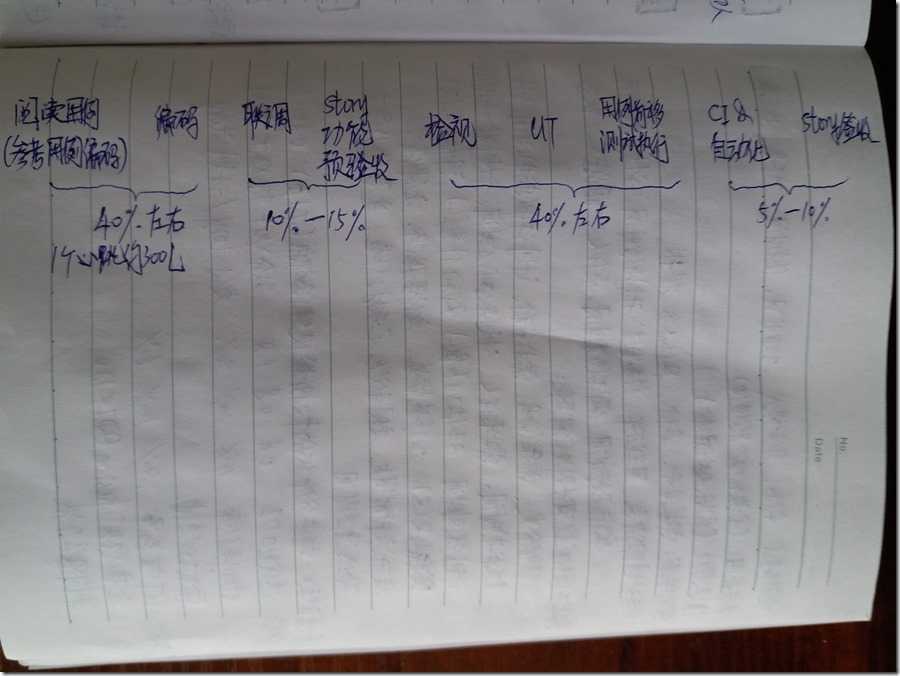 阅读用例
(参考用例编码)
编码
联调
story
功能
预验收
检视
UT
用例前移
测试执行
CI &
自动化
story验收
40%左右
10%-15%
40%左右
5%-10%
1个心跳约300L
No.
Date